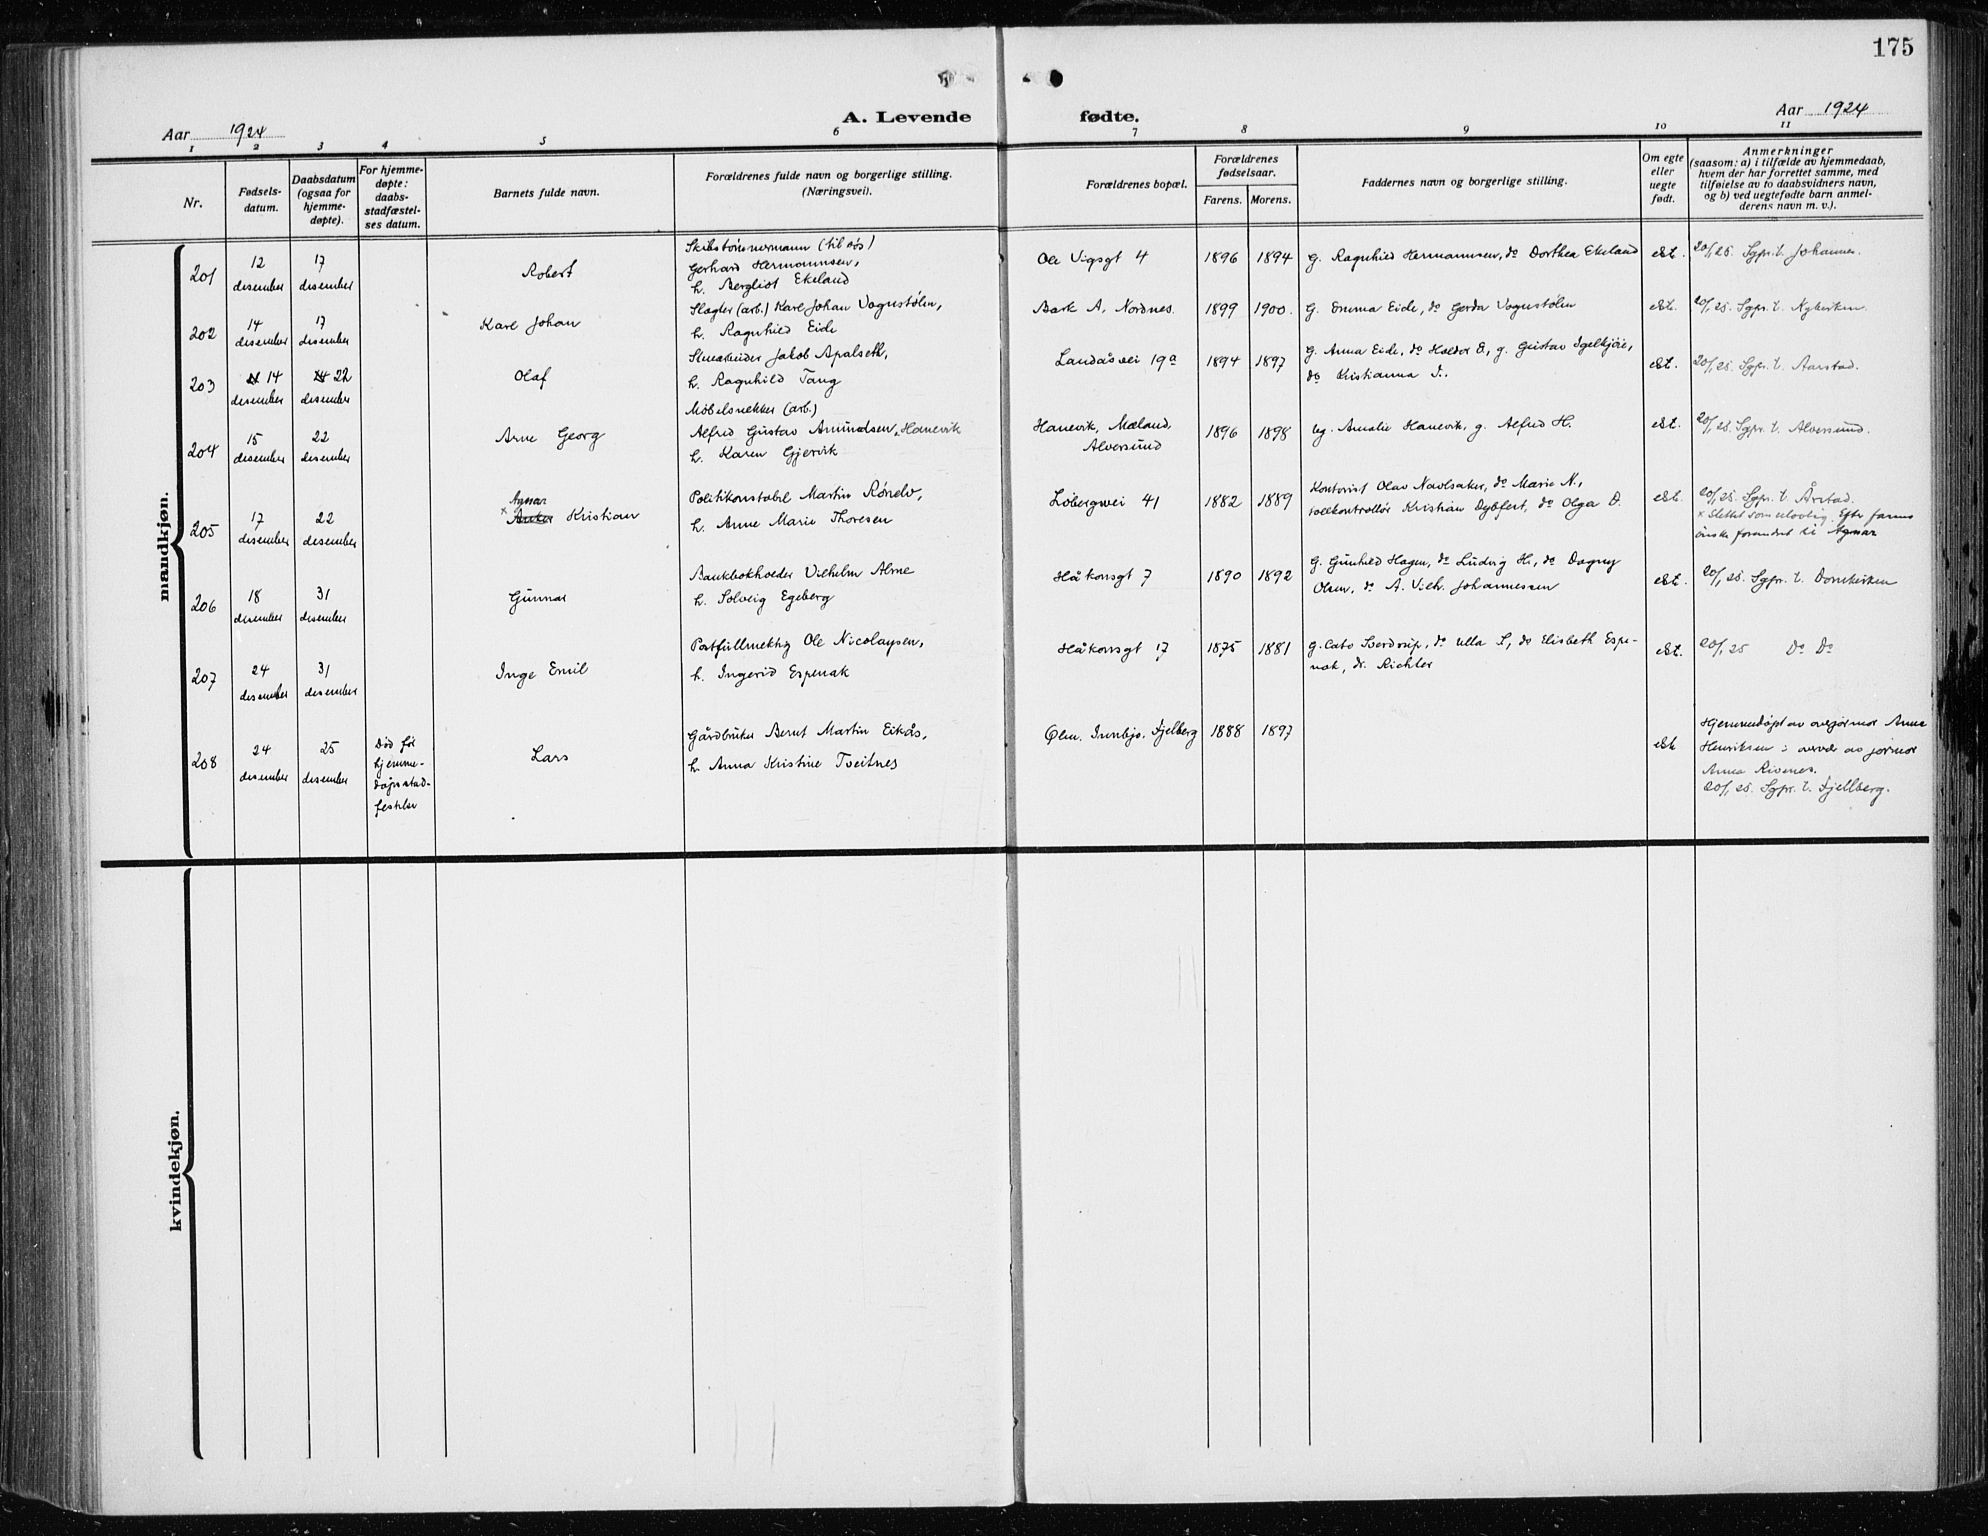 175
Aar 1924
A. Levende fødte.
Aar 1924
1 2 3 4 5 6 7 8 9 10 11
Nr.
Fødsels-
datum.
Daabsdatum
(ogsaa for
hjemme-
døpte).
For hjemme-
døpte:
daabs-
stadfæstel-
ses datum.
Barnets fulde navn.
Forældrenes fulde navn og borgerlige stilling.
(Næringsvei).
Forældrenes bopæl.
Forældrenes
fødselsaar.
Farens. Morens.
Faddernes navn og borgerlige stilling.
Om egte
eller
uegte
født.
Anmerkninger
(saasom: a) i tilfælde av hjemmedaab,
hvem der har forrettet samme, med
tilføielse av to daabsvidners navn,
og b) ved uegtefødte barn anmel-
derens navn m. v.).
mandkjøn.
201
12
desember
17
desember
Robert
Skibstømmermann (til sjøs)
Gerhard Hermannsen,
h. Bergliot Ekeland
Ole Vigsgt 4
1896 1894
g. Ragnhild Hermannsen, do Dorthea Ekeland
ekt.
20/1 25. Sgpr. t. Johannes.
202
14
desember
17
desember
Karl Johan
Slagter (arb.) Karl Johan Vognstølen,
h. Ragnhild Eide
Bark A, Nordnes.
1899 1900.
g. Emma Eide, do Gerda Vognstølen
ekt.
20/1 25. Sgpr. t. Nykirken.
203
14
desember
22
desember
Olaf
Stenarbeider Jakob Apalseth,
h. Ragnhild Tang
Landåsvei 19a
1894 1897
g. Anna Eide, do Halder E., g. Gustav Igelkjøie,
do Kristianna I..
ekt.
20/1 25. Sgpr. t. Aarstad.
204
15
desember
22
desember
Arne Georg
Møbelsnekker (arb.)
Alfred Gustav Amundsen, Hanevik
h. Karen Gjervik
Hanevik, Mæland,
Alversund
1896 1898
Ug. Amalie Hanevik, g. Alfred H.
ekt.
20/1 25. Sgpr. t. Alversund.
205
17
desember
22
desember
Agnar
x Anker Kristian
Politikonstabel Martin Rønelv,
h. Anne Marie Thoresen
Løbergsvei 41
1882 1889
Kontorist Olav Navlsaker, do Marie N.,
tollkontrollør Kristian Dybfert, do Olga D.
ekt.
20/1 25. Sgpr. t. Årstad.
x Slettet som ulovlig. Efter farens
ønske forandret til Agnar
206
18
desember
31
desember
Gunnar
Bankbokholder Vilhelm Alme
h. Solveig Egeberg
Håkonsgt 7
1890 1892
g. Gunhild Hagen, do Ludvig H., do Dagny
Olsen, do A. Vilh. Johannessen
ekt.
20/1 25. Sgpr. t. Domkirken
207
24
desember
31
desember
Inge Emil
Postfullmektig Ole Nicolaysen,
h. Ingerid Espenak
Håkonsgt 17
1875 1881
g. Cato Sverdrup, do Ulla S, do Elisabeth Espe-
nak, dr. Richter
ekt.
20/1 25 Do Do
208
24
desember
25
desember
Død før
hjemme-
døpsstad-
festelse
Lars
Gårdbruker Bernt Martin Eikås,
h. Anna Kristine Tveitnes
Ølen, Innbjo. Fjelberg
1888 1897
ekt
Hjemmedøpt av overjormor Anna
Henriksen i overvær av jormor
Anna Rivenes.
20/1 25. Sgpr. t. Fjellberg.
kvindekjøn.